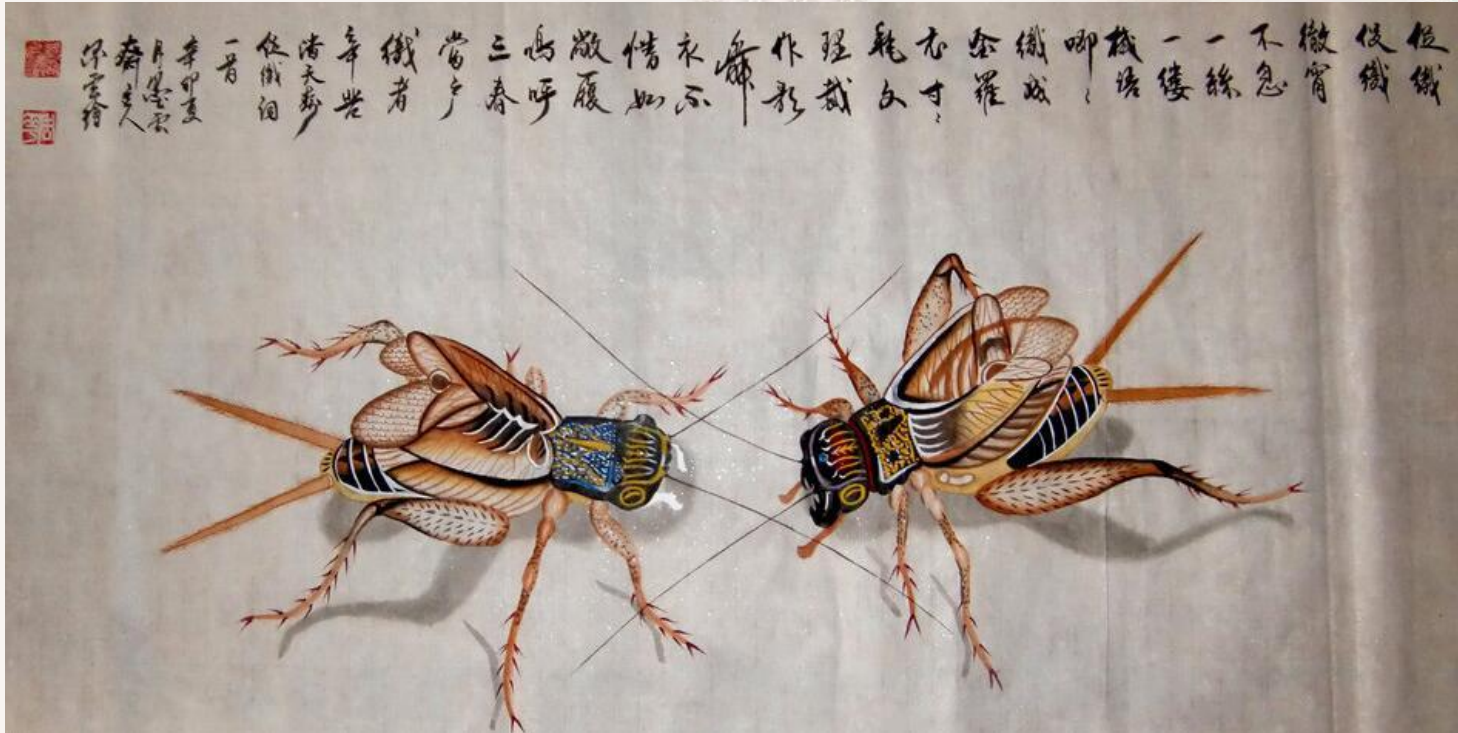 促織
促織
徹宵
不息
一絲
一縷
機語
唧〻
織成
金羅
衣寸〻
文
理裁
作歌
舞
衣不
惜如
敝履
嗚呼
三春
當戶
織者
辛苦
潘天壽
促織詞
一首
辛卯夏
月墨雲
齋主人
雲繪